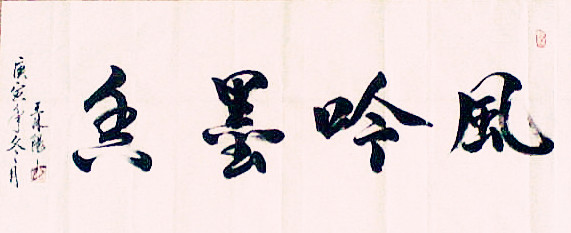 風吟墨香
庚寅年冬月